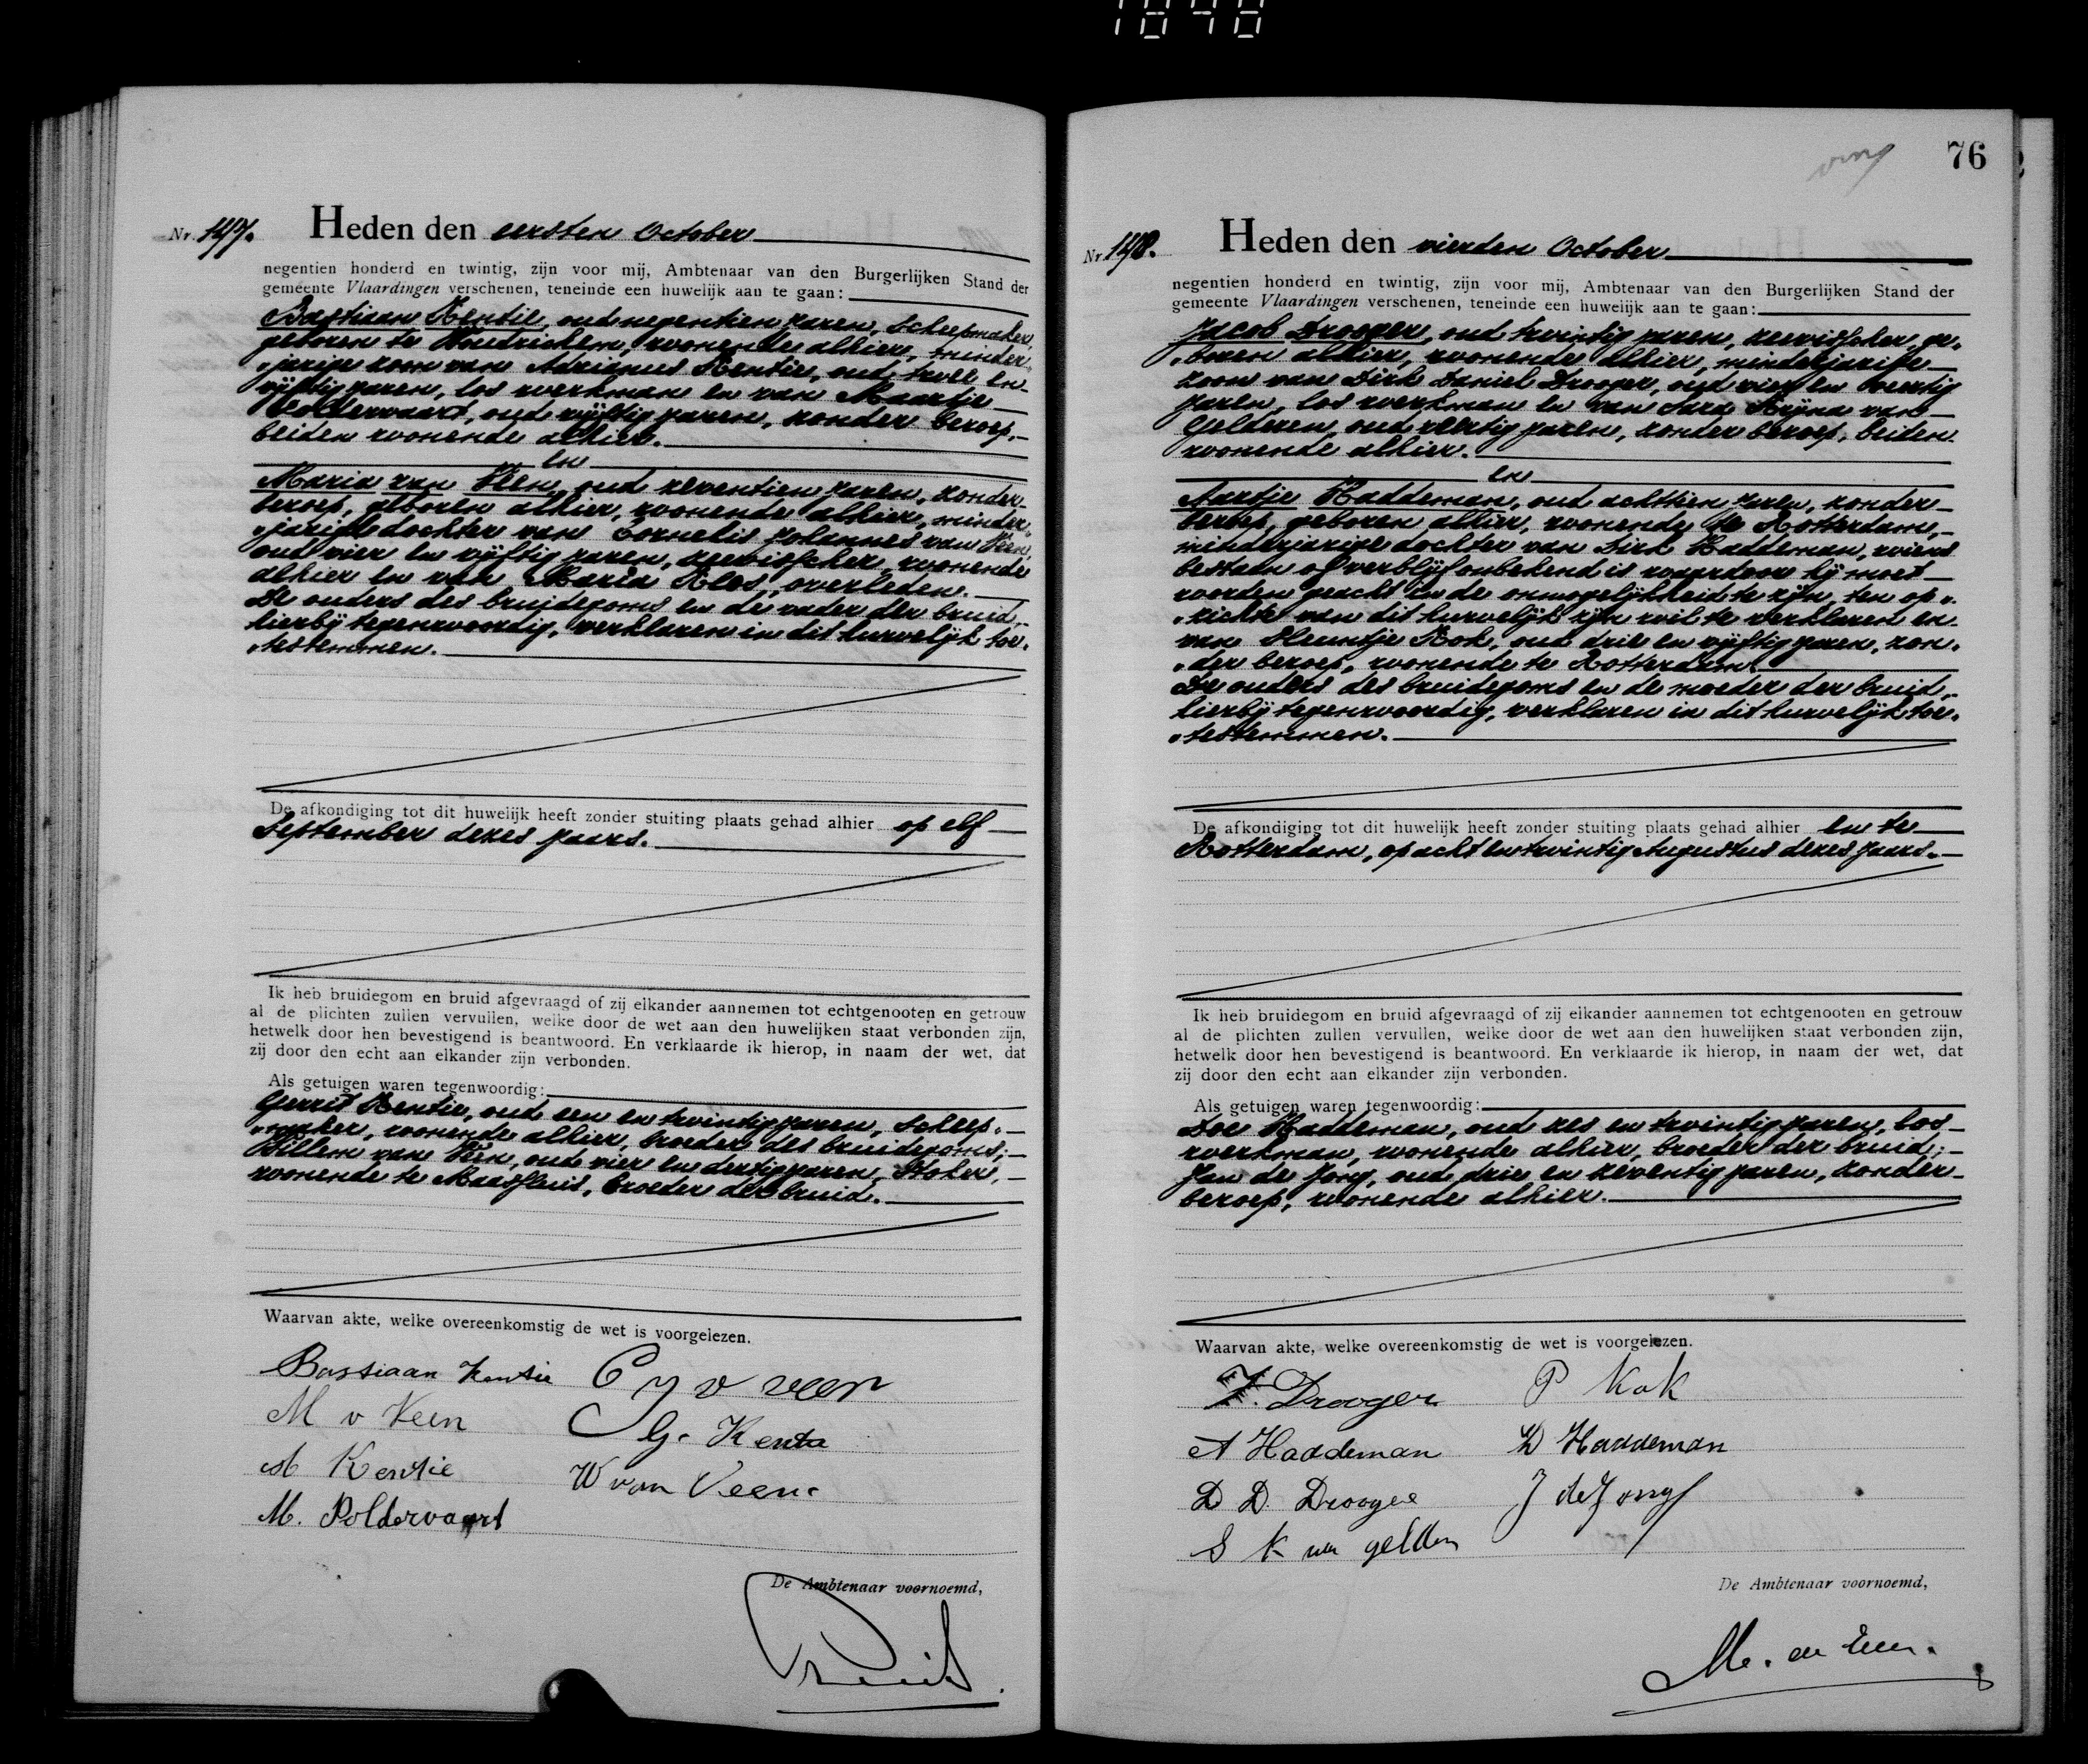 1848
Nr. 147. Heden den eersten October
negentien honderd en twintig, zijn voor mij, Ambtenaar van den Burgerlijken Stand der
gemeente Vlaardingen verschenen, teneinde een huwelijk aan te gaan:
Bastiaan Kentie, oud negentien jaren, scheepmaker,
geboren te, wonende alhier, minder-
"jarige zoon van Adrianus Kentie, oud twee en
vijftig jaren, los werkman en van Maartje
Poldervaart, oud vijftig jaren, zonder beroep,
beiden wonende alhier.
en
Maria van Veen, oud zeventien jaren, zonder
beroep, geboren alhier, wonende alhier, minder-
"jarige dochter van Cornelis Johannes van Veen,
oud vier en vijftig jaren, zeevisscher, wonende
alhier en van Maria, overleden.
De ouders des bruidegoms en de vader der bruid,
hierbij tegenwoordig, verklaren in dit huwelijk toe-
"testemmen.
De afkondiging tot dit huwelijk heeft zonder stuiting plaats gehad alhier op elf
September dezes jaars.
Ik heb bruidegom en bruid afgevraagd of zij elkander aannemen tot echtgenooten en getrouw
al de plichten zullen vervullen, welke door de wet aan den huwelijken staat verbonden zijn,
hetwelk door hen bevestigend is beantwoord. En verklaarde ik hierop, in naam der wet, dat
zij door den echt aan elkander zijn verbonden.
Als getuigen waren tegenwoordig:
Gerrit Kentie, oud een en twintig jaren, scheep-
"maker, wonende alhier, broeder des bruidegoms;
Willem van Veen, oud vier en dertig jaren, stoker,
wonende te Maassluis, broeder der bruid.
Waarvan akte, welke overeenkomstig de wet is voorgelezen.
Bastiaan Kentie C J v veen
M v Veen G. Kentie
A Kentie W van Veen
M. Poldervaart
De Ambtenaar voornoemd,
76
Nr. 148. Heden den vierden October
negentien honderd en twintig, zijn voor mij, Ambtenaar van den Burgerlijken Stand der
gemeente Vlaardingen verschenen, teneinde een huwelijk aan te gaan:
Jacob Drooger, oud twintig jaren, zeevisscher, ge-
"boren alhier, wonende alhier, minderjarige
zoon van Dirk Daniel Drooger, oud vier en veertig
jaren, los werkman en van Sara Krijna van
Gelderen, oud veertig jaren, zonder beroep, beiden
wonende alhier.
en
Aartje Haddeman, oud achttien jaren, zonder
beroep, geboren alhier, wonende te Rotterdam,
minderjarige dochter van Dirk Haddeman, wiens
bestaan of verblijf onbekend is waardoor hij moet
worden geacht in de onmogelijkheid te zijn, ten op-
"zichte van dit huwelijk zijn wil te verklaren en
van Pleuntje Kok, oud drie en vijftig jaren, zon-
"der beroep, wonende te Rotterdam.
De ouders des bruidegoms en de moeder der bruid,
hierbij tegenwoordig, verklaren in dit huwelijk toe-
"testemmen.
De afkondiging tot dit huwelijk heeft zonder stuiting plaats gehad alhier en te
Rotterdam, op acht en twintig Augustus dezes jaars.
Ik heb bruidegom en bruid afgevraagd of zij elkander aannemen tot echtgenooten en getrouw
al de plichten zullen vervullen, welke door de wet aan den huwelijken staat verbonden zijn,
hetwelk door hen bevestigend is beantwoord. En verklaarde ik hierop, in naam der wet, dat
zij door den echt aan elkander zijn verbonden.
Als getuigen waren tegenwoordig:
Haddeman, oud zes en twintig jaren, los
werkman, wonende alhier, broeder der bruid;
Jan de Jong, oud drie en zeventig jaren, zonder
beroep, wonende alhier.
Waarvan akte, welke overeenkomstig de wet is voorgelezen.
J. Drooger P Kok
A Haddeman D Haddeman
D D Drooger J de Jong
S K van gelder
De Ambtenaar voornoemd,